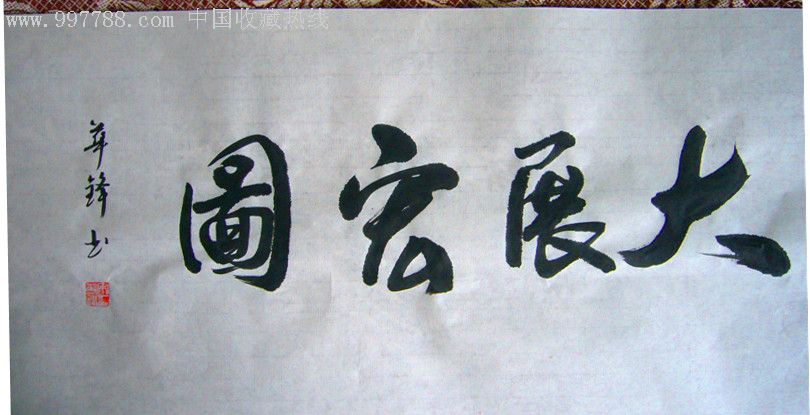 www.997788.com 中国收藏热线
大展宏圖
華鋒书